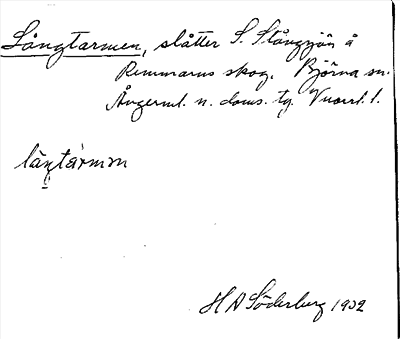 Långtarmen, slåtter S. Stångsjön å
Remmarns skog. Björna sn.
Ångerml. n. doms. tg. l.
låŋtarmɔn
H A Söderberg 1932